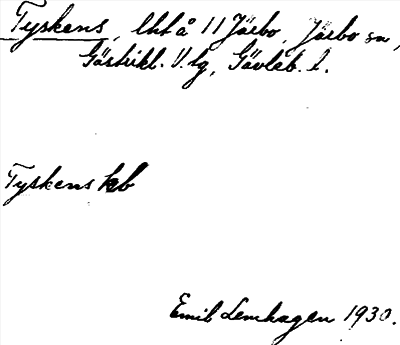 Tyskens, lht å 11 Järbo, Järbo sn,
Gästrikl. V. tg, Gävleb. l.
Tyskens hb
Emil Lemhagen 1930.